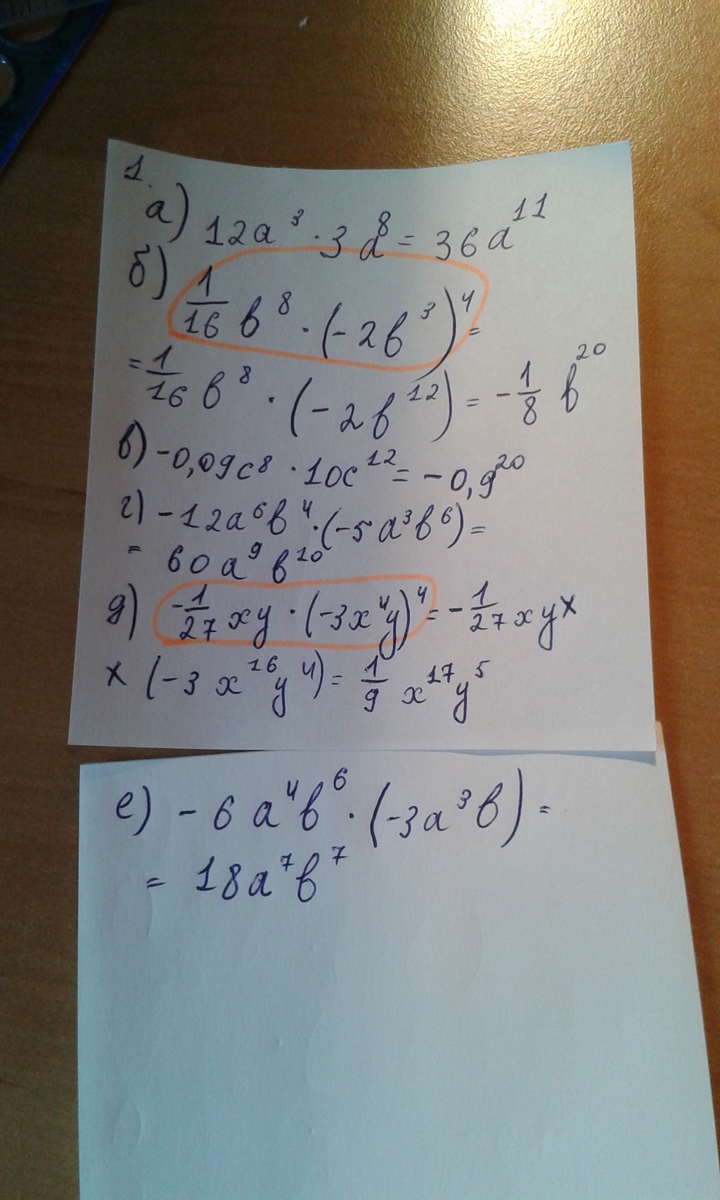 1.
а) 12a³ · 3a⁸ = 36a¹¹
б) 1/16 b⁸ · (-2b³)⁴ =
= 1/16 b⁸ · (-2b¹²) = -1/8 b²⁰
в) -0,09c⁸ · 10c¹² = -0,9²⁰
г) -12a⁶b⁴ · (-5a³b⁶) =
= 60a⁹b¹⁰
д) -1/27 xy · (-3x⁴y)⁴ = -1/27 xy ×
× (-3x¹⁶y⁴) = 1/9 x¹⁷y⁵
е) -6a⁴b⁶ · (-3a³b) =
= 18a⁷b⁷